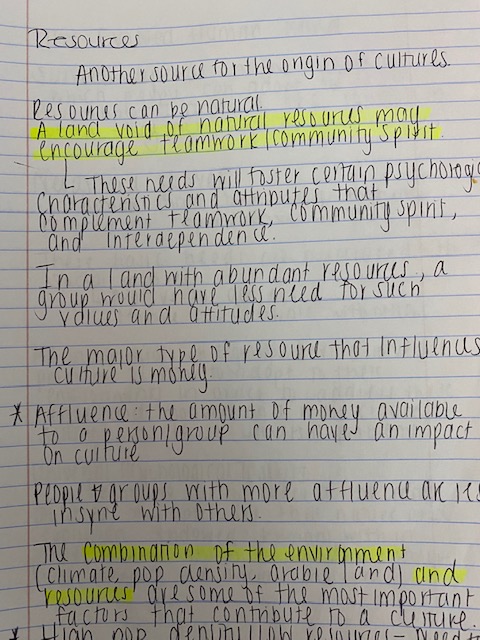 Resources
Another source for the origin of cultures.
Resources can be natural.
A land void of natural resources may
encourage teamwork/community spirit.
These needs will foster certain psychologic
characteristics and attributes that
complement teamwork, community spirit,
and interdependence.
In a land with abundant resources, a
group would have less need for such
values and attitudes.
The major type of resource that influences
culture is money.
* Affluence: the amount of money available
to a person/group can have an impact
on culture
People & groups with more affluence are les
insync with others.
The combination of the environment
(climate, pop density, arable land) and
resources are some of the most important
factors that contribute to a culture.
* High pop density/low resources